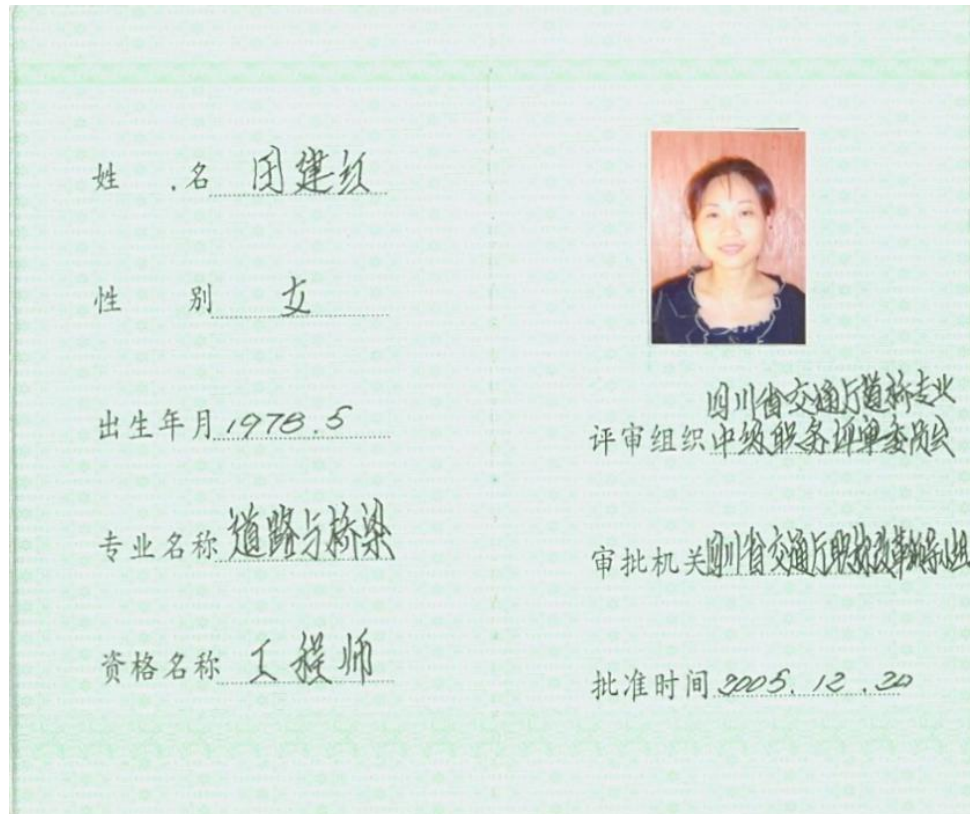 姓 名 周建红
性 别 女
出生年月 1978.5
专业名称 道路与桥梁
资格名称 工程师
四川省交通厅道桥专业
评审组织 中级职务评审委员会
审批机关 四川省交通厅职称改革领导小组
批准时间 2005.12.20